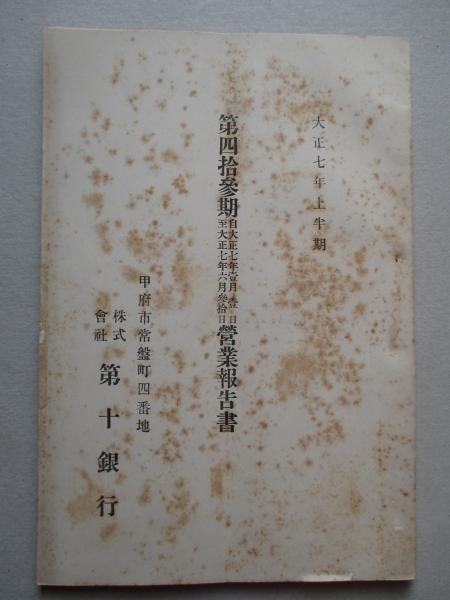 大正七年上半期
第四拾參期自大正七年壹月壹日至大正七年六月參拾日營業報告書
甲府市常盤町四番地
株式會社第十銀行